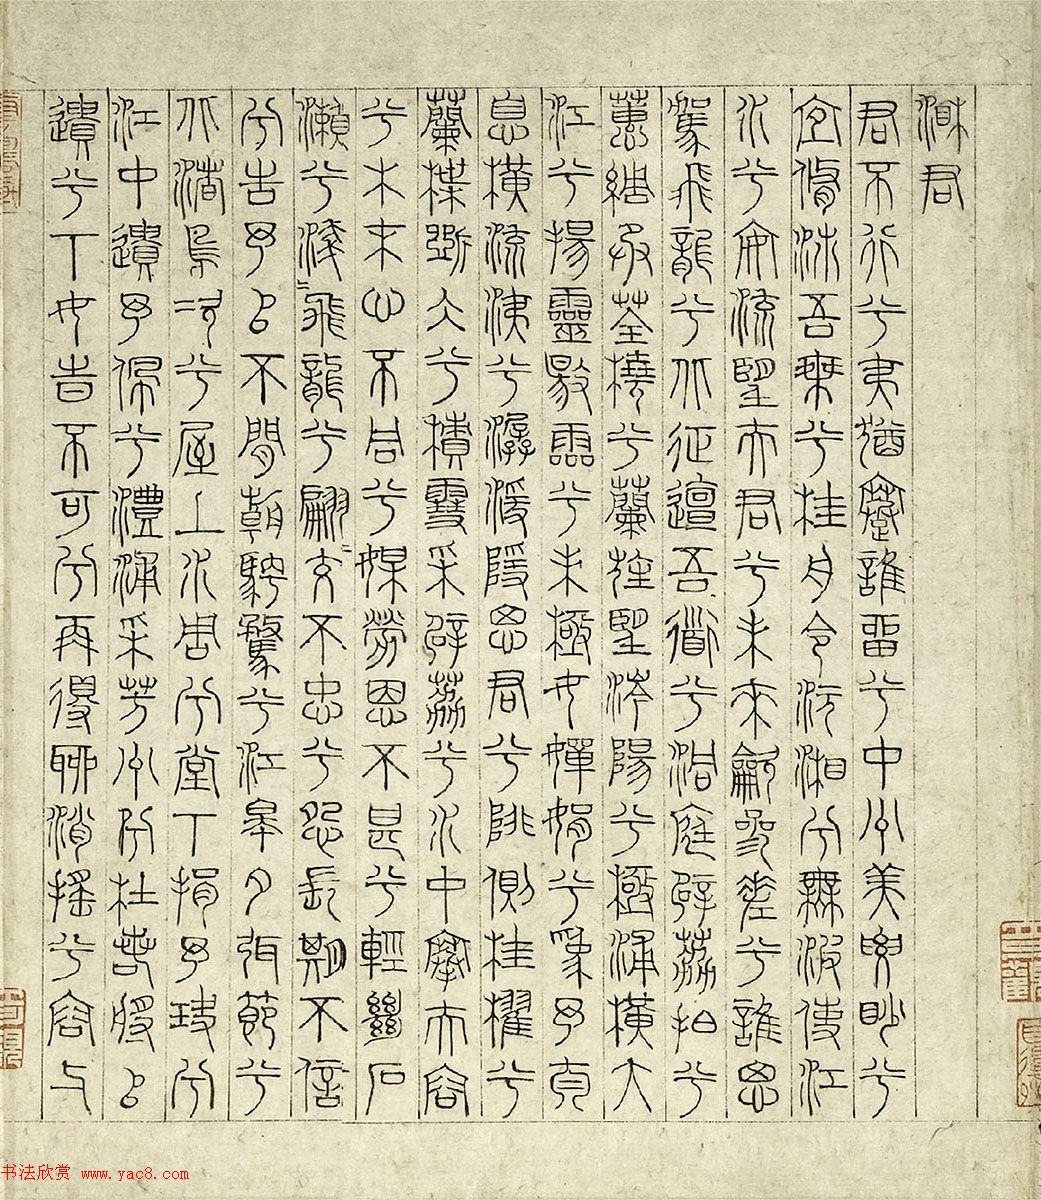 湘君
君不行兮夷猶蹇誰留兮中州美要眇兮
宜脩沛吾乘兮桂舟令沅湘兮無波使江
水兮安流望夫君兮未來龡參差兮誰思
駕飛龍兮北征邅吾道兮洞庭薜荔拍兮
蕙綢承荃橈兮蘭旌望涔陽兮極浦橫大
江兮揚靈敭靈兮未極女嬋娟兮為予
息橫流涕兮潺湲隱思君兮陫側桂櫂兮
蘭楪斲仌兮積雪采薜荔兮水中搴夫容
兮木末心不同兮媒勞恩不甚兮輕絕石
瀨兮淺〻飛龍兮翩〻交不忠兮怨長期不信
兮告予以不閒朝騁騖兮江皋夕弭節兮
北渚鳥次兮屋上水周兮堂下捐予玦兮
江中遺予佩兮澧浦采芳州兮杜若將以
遺兮下女旹不可兮再得聊消搖兮容与
书法欣赏 www.yac8.com